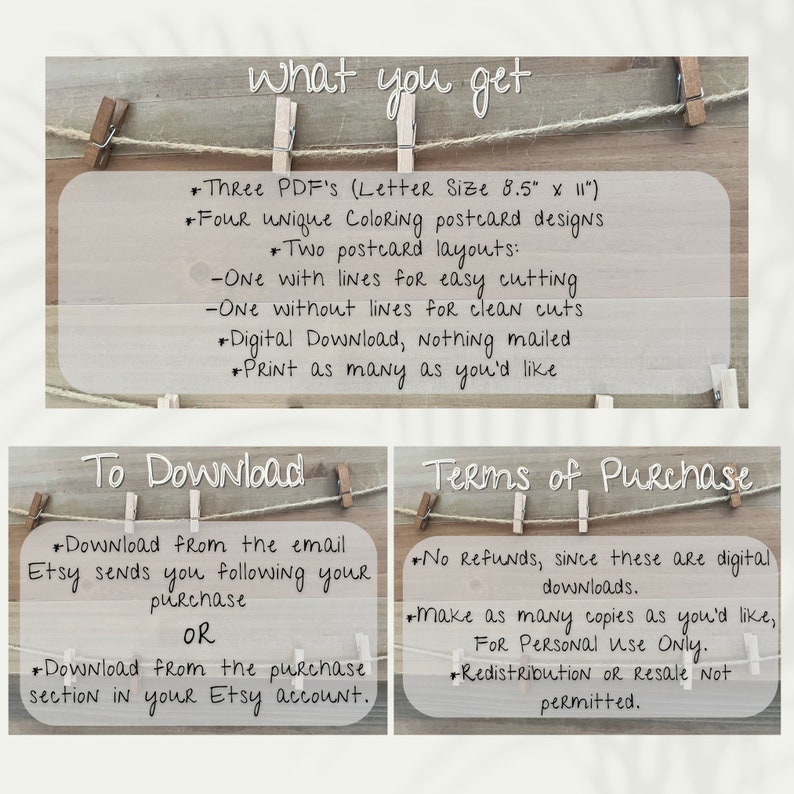 What you get
*Three PDF's (Letter Size 8.5" x 11")
*Four unique Coloring postcard designs
*Two postcard layouts:
-One with lines for easy cutting
-One without lines for clean cuts
*Digital Download, nothing mailed
*Print as many as you'd like
To Download
*Download from the email
Etsy sends you following your
purchase
OR
*Download from the purchase
section in your Etsy account.
Terms of Purchase
*No refunds, since these are digital
downloads.
*Make as many copies as you'd like,
For Personal Use Only.
*Redistribution or resale not
permitted.